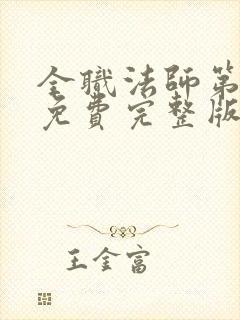 全職法師第
免費完整版
王金富